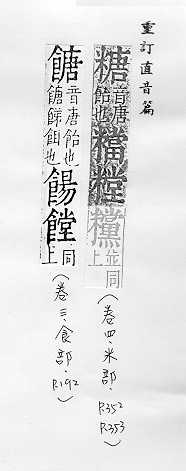 重訂直音篇
糖 音唐飴也 糛 並同上
(卷四.米部.
P.352
P.353)
餹 音唐飴也 餹䬾餌也 餳 同上
(卷三.食部.
P.192)